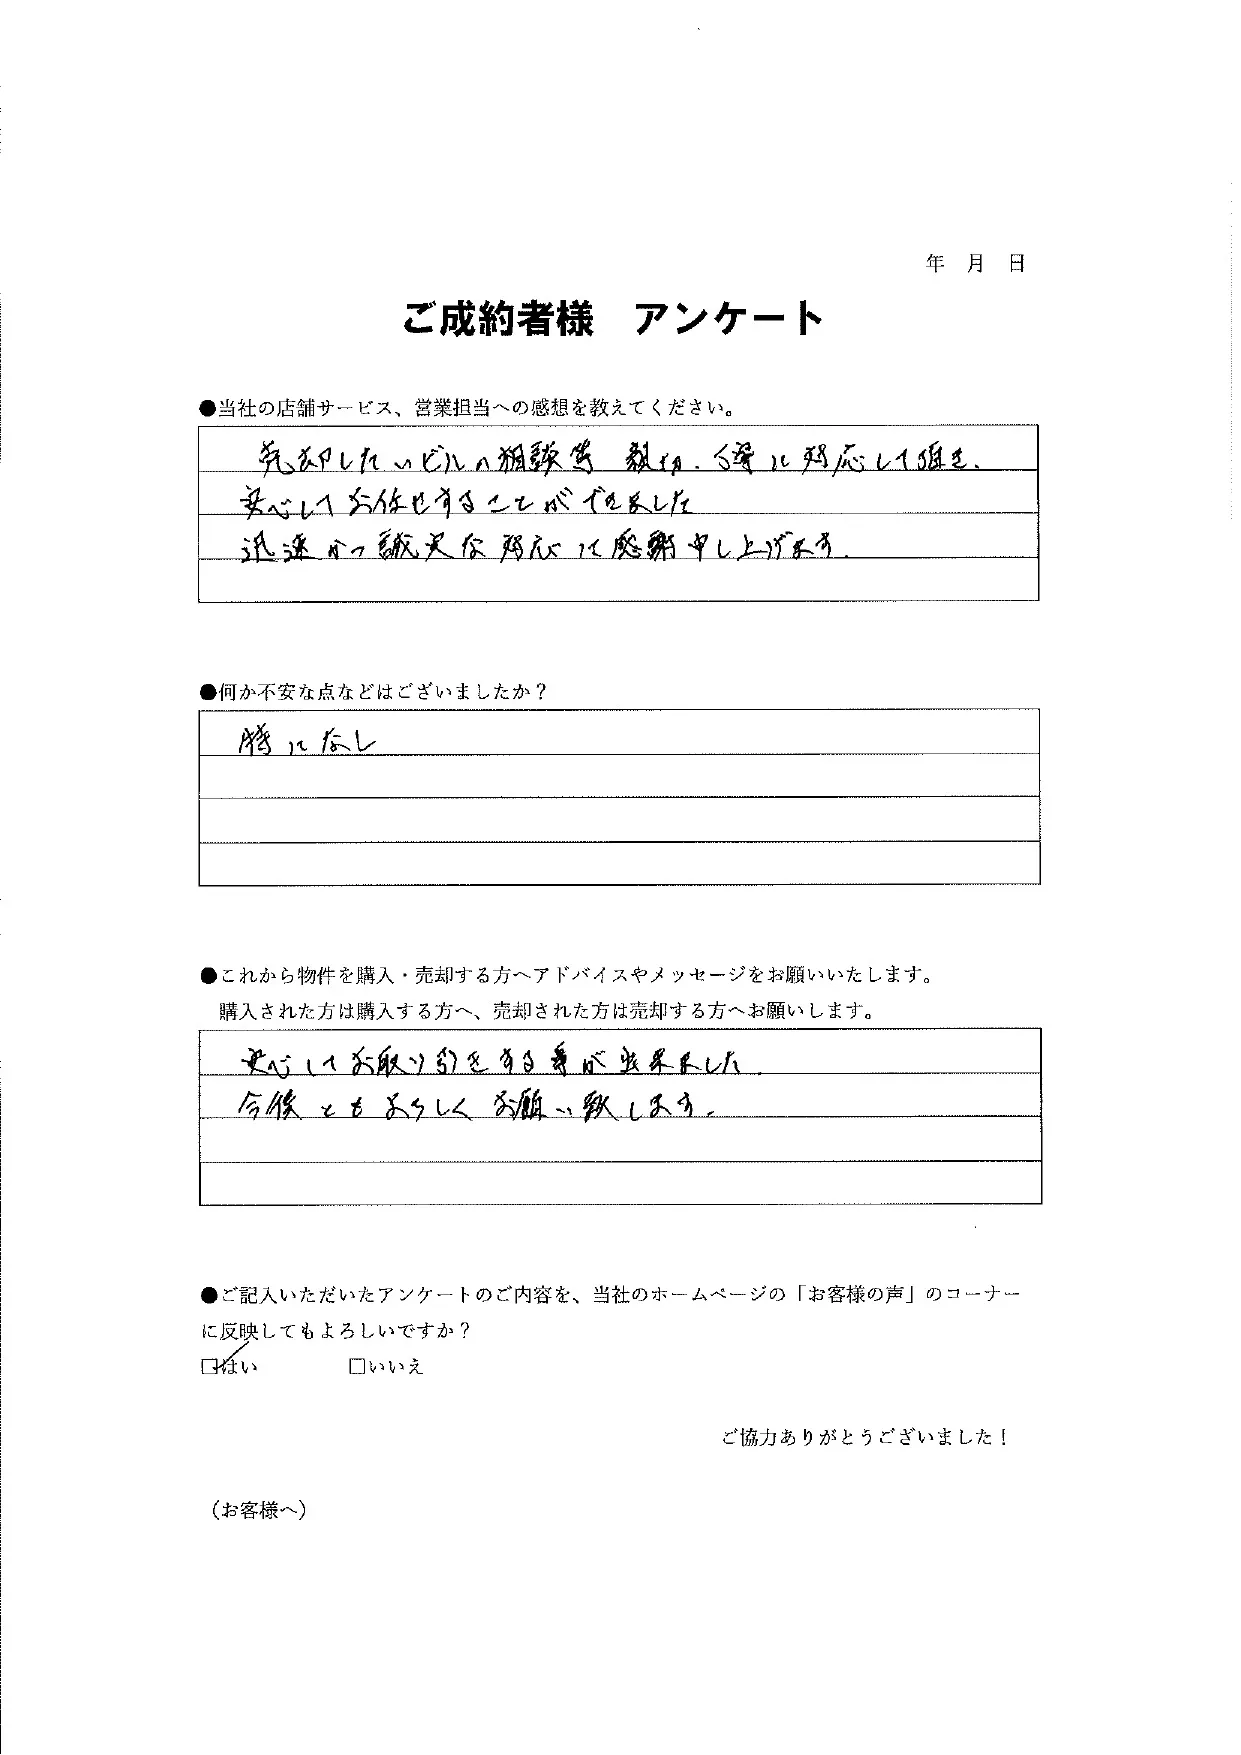 年 月 日
ご成約者様 アンケート
●当社の店舗サービス、営業担当への感想を教えてください。
売却したいビルの相談等 親切、丁寧に対応して頂き、
安心してお任せすることができました
迅速かつ誠実な対応に感謝申し上げます。
●何か不安な点などはございましたか？
特になし
●これから物件を購入・売却する方へアドバイスやメッセージをお願いいたします。
購入された方は購入する方へ、売却された方は売却する方へお願いします。
安心してお取り引きする事が出来ました。
今後ともよろしくお願い致します。
●ご記入いただいたアンケートのご内容を、当社のホームページの「お客様の声」のコーナー
に反映してもよろしいですか？
☑はい □いいえ
ご協力ありがとうございました！
（お客様へ）